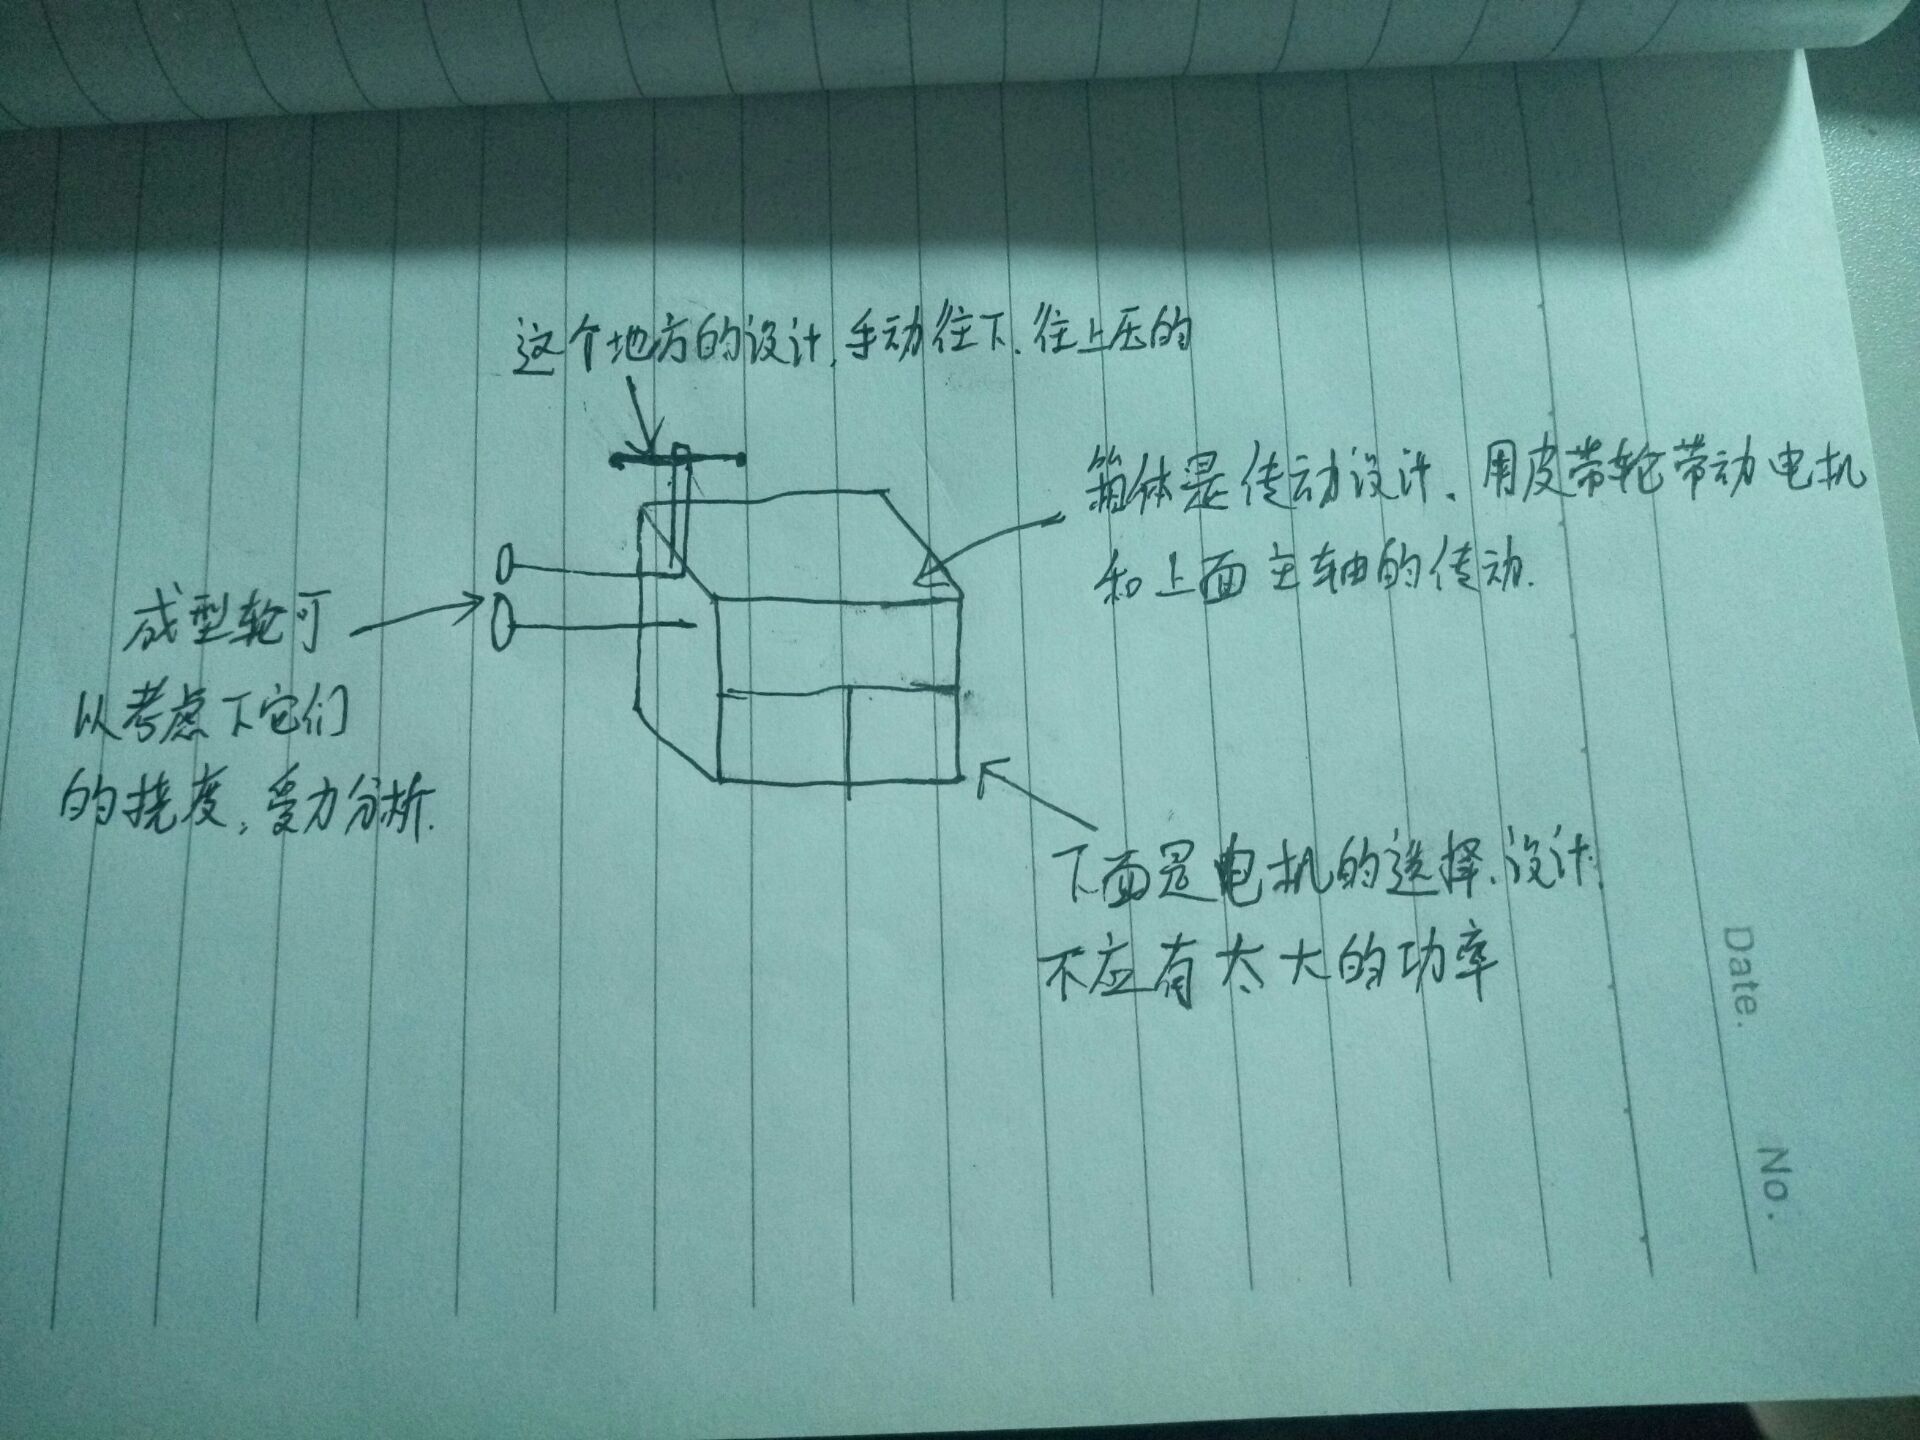 这个地方的设计,手动往下.往上压的
箱体是传动设计、用皮带轮带动电机
和上面主轴的传动.
成型轮可
以考虑下它们
的挠度,受力分析.
下面是电机的选择、设计.
不应有太大的功率
Date.
No.